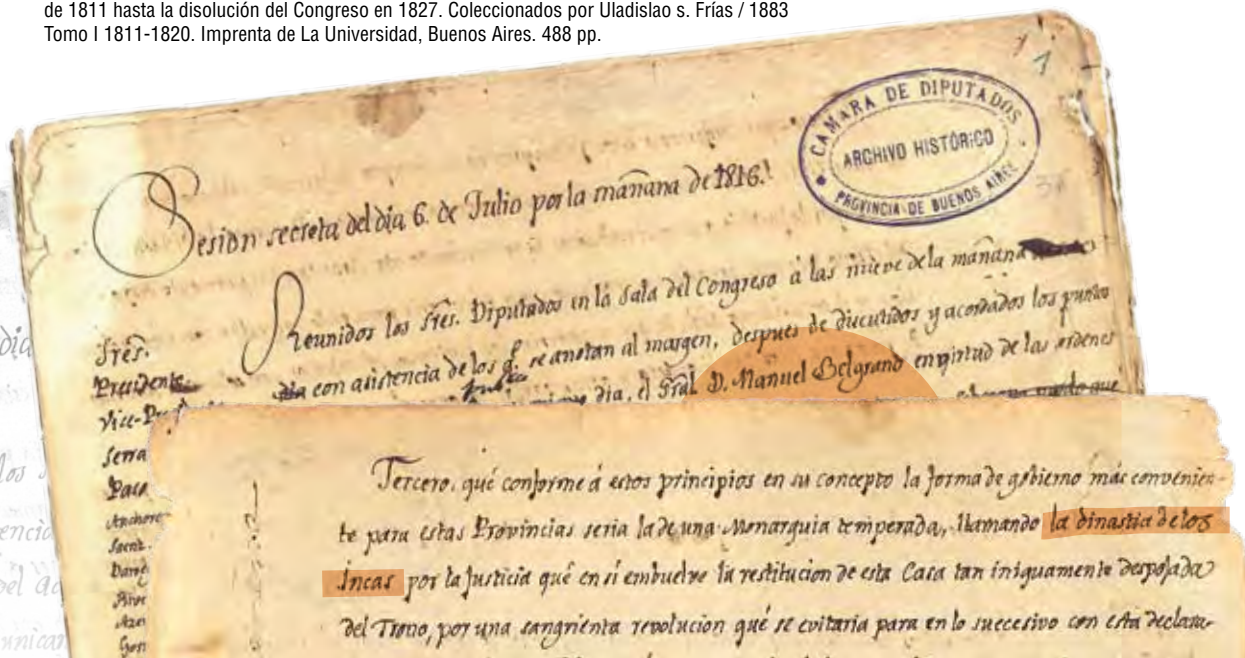 de 1811 hasta la disolución del Congreso en 1827. Coleccionados por Uladislao s. Frías / 1883
Tomo I 1811-1820. Imprenta de La Universidad, Buenos Aires. 488 pp.
1
CAMARA DE DIPUTADOS
ARCHIVO HISTÓRICO
PROVINCIA DE BUENOS AIRES
Sesion secreta del dia 6. de Julio por la mañana de 1816.
Reunidos los Sres. Diputados en la Sala del Congreso á las nueve de la mañana
con asistencia de los q.e se anotan al margen, despues de discutidos y acordados los puntos
dia, el Gral. D. Manuel Belgrano en virtud de las ordenes
Sres.
Presidente
Vice-
Serra
Tercero, qué conforme á estos principios en su concepto la forma de gobierno más convenien-
te para estas Provincias seria la de una Monarquia temperada, llamando la dinastia de los
Incas por la Justicia qué en si embuelve la restitucion de esta Casa tan iniquamente despojada
del Trono, por una sangrienta revolucion qué se evitaria para en lo succesivo con esta declara-